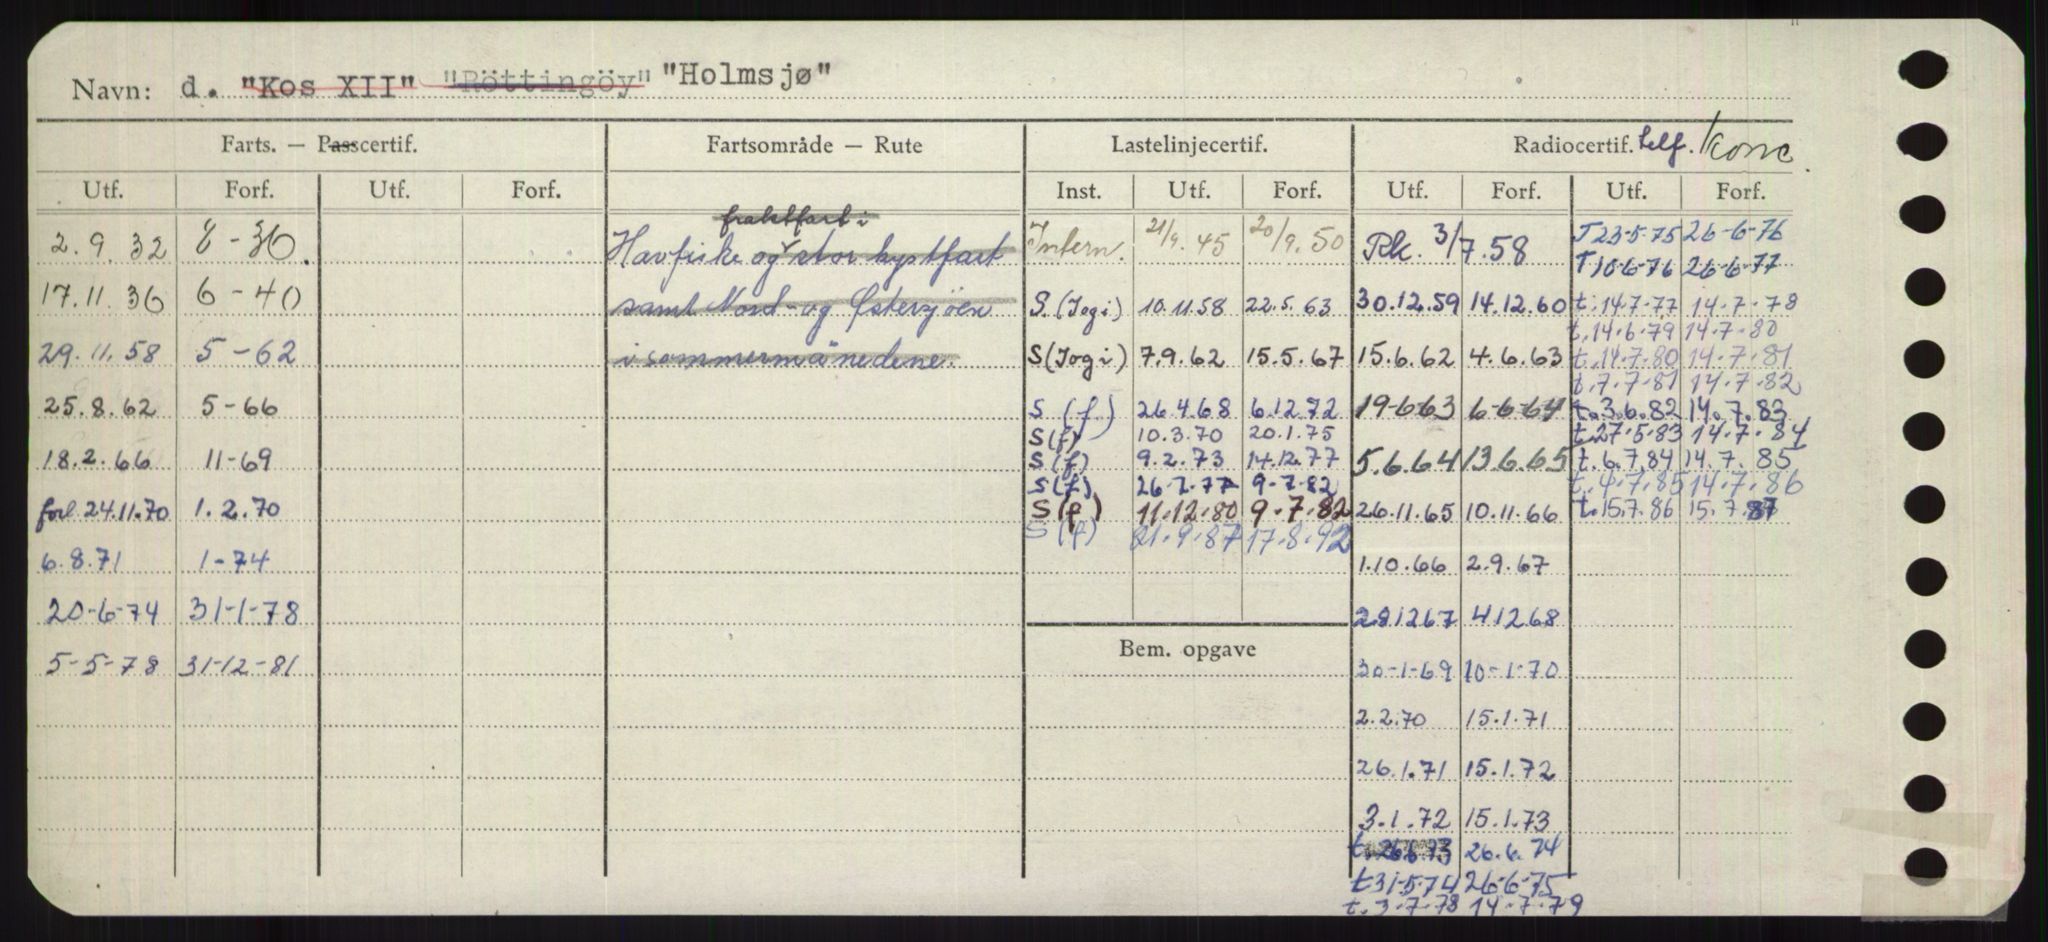 Navn: d. "Kos XII" "Röttingöy" "Holmsjø"
Farts. — Passcertif. Fartsområde — Rute Lastelinjecertif. Radiocertif. telf. konc.
Utf. Forf. Utf. Forf. Inst. Utf. Forf. Utf. Forf. Utf. Forf.
2.9.32 8-36.
17.11.36 6-40
29.11.58 5-62
25.8.62 5-66
18.2.66 11-69
forl. 24.11.70 1.2.70
6.8.71 1-74
20-6-74 31-1-78
5-5-78 31-12-81
fraktfart i
Havfiske og stor kystfart
samt Nord- og Østersjöen
i sommermånedene.
Intern. 21/9.45 20/9.50
S.(Jogi) 10.11.58 22.5.63
S(Jogi) 7.9.62 15.5.67
S (f.) 26.4.68 6.12.72
S(f) 10.3.70 20.1.75
S(f) 9.2.73 14.12.77
S(f) 26.7.77 9.7.82
S(f) 11.12.80 9.7.82
S(f) 21.9.87 17.8.92
Bem. opgave
Rk. 3/7.58
30.12.59 14.12.60
15.6.62 4.6.63
19-6-63 6-6-64
5.6.64 13.6.65
26.11.65 10.11.66
1.10.66 2.9.67
29.12.67 4.12.68
30-1-69 10-1-70
2.2.70 15.1.71
26.1.71 15.1.72
3.1.72 15.1.73
t. 26.6.73 26.6.74
t 31-5-74 26-6-75
t. 3.7.78 14.7.79
T 23-5-75 26-6-76
T 10-6-76 26-6-77
t. 14.7.77 14.7.78
t. 14.6.79 14.7.80
t. 14.7.80 14.7.81
t. 7.7.81 14.7.82
t. 3.6.82 14.7.83
t. 27.5.83 14.7.84
t. 6.7.84 14.7.85
t. 4.7.85 14.7.86
t. 15.7.86 15.7.87